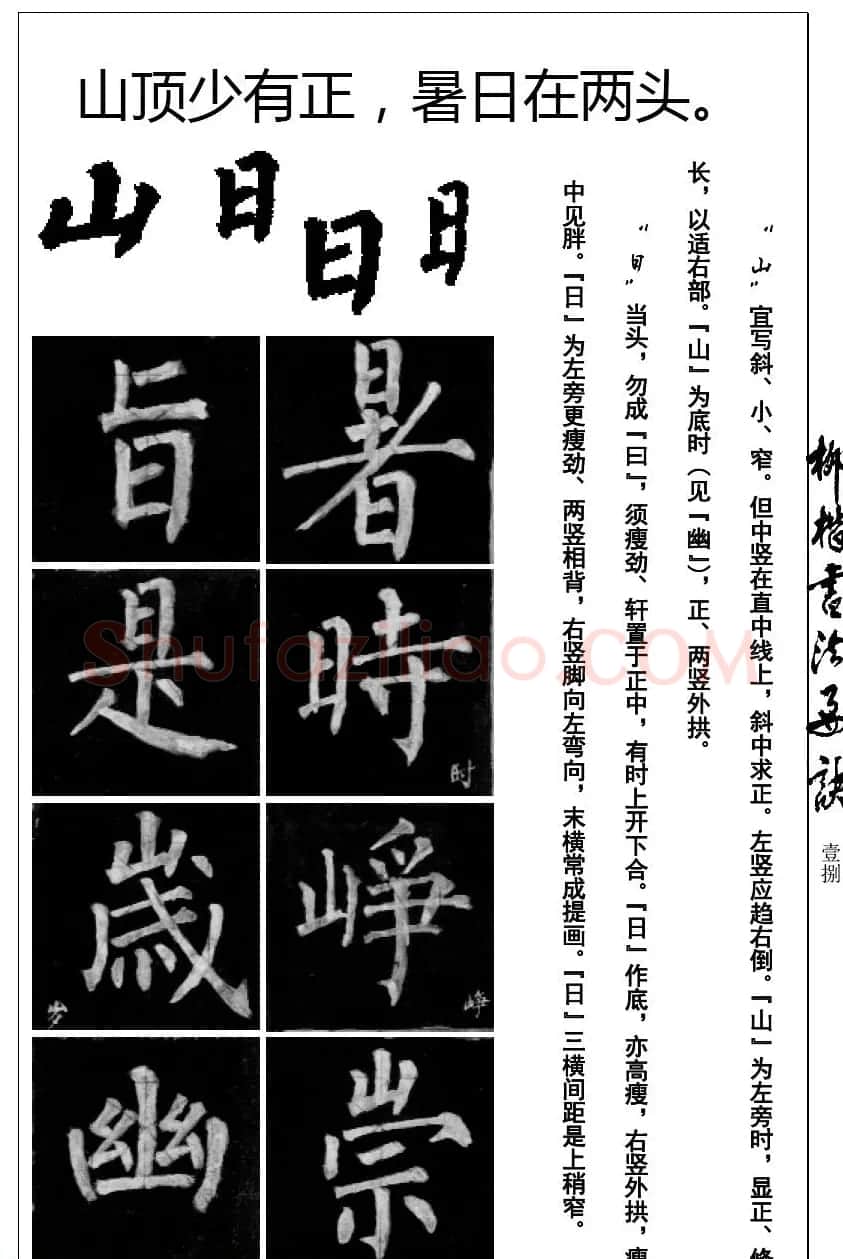 山顶少有正，暑日在两头。
山 日 日 日
旨 暑
是 時
时
歲 崢
岁 峥
幽 崇
“山”宜写斜、小、窄。但中竖在直中线上，斜中求正。左竖应趋右倒。『山』为左旁时，显正、修
长，以适右部。『山』为底时（见『幽』），正、两竖外拱。
“日”当头，勿成『曰』，须瘦劲、轩置于正中，有时上开下合。『日』作底，亦高瘦，右竖外拱，瘦
中见胖。『日』为左旁更瘦劲、两竖相背，右竖脚向左弯向，末横常成提画。『日』三横间距是上稍窄。
柳楷书法要诀
壹捌
Shufaziliao.COM